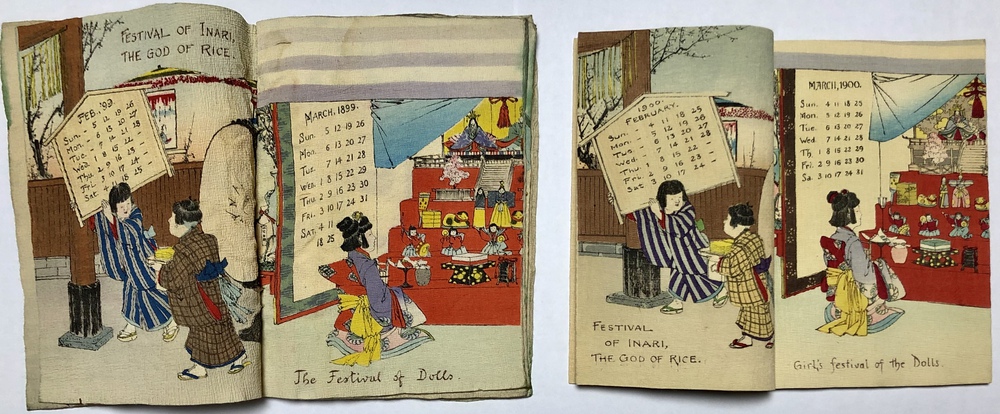 FESTIVAL OF INARI,
THE GOD OF RICE.
FEB. '99
Sun. - 5 12 19 26
Mon. - 6 13 20 27
Tue. - 7 14 21 28
Wed. 1 8 15 22 -
Thu. 2 9 16 23 -
Fri. 3 10 17 24 -
Sat. 4 11 18 25
MARCH, 1899.
Sun. 5 12 19 26
Mon. 6 13 20 27
Tue. 7 14 21 28
Wed. 1 8 15 22 29
Thu. 2 9 16 23 30
Fri. 3 10 17 24 31
Sat. 4 11
18 25
The Festival of Dolls.
1900
FEBRUARY.
Sun. - 4 11 18 25
Mon. - 5 12 19 26
Tue. - 6 13 20 27
Wed. - 7 14 21 28
Thu. 1 8 15 22 -
Fri. 2 9 16 23 -
Sat. 3 10 17 24 -
FESTIVAL
OF INARI,
THE GOD OF RICE.
MARCH, 1900.
Sun. 4 11 18 25
Mon. 5 12 19 26
Tue. 6 13 20 27
Wed. 7 14 21 28
Th. 1 8 15 22 29
Fri. 2 9 16 23 30
Sat. 3 10 17 24 31
Girl's festival of the Dolls.